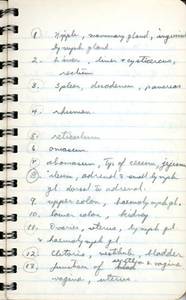 1. Nipple, mammary gland, inguinal
lymph gland.
2. Liver, liver & cysticercus,
rectum
3. Spleen, duodenum, pancreas
4. rhumen
5. reticulum
6. omasum
7. abomasum, Tip of cecum, jejunum
8. ileum, adrenal & small lymph
gl. dorsal to adrenal.
9. upper colon, haemolymph gl.
10. lower colon, kidney
11. Ovaries, uterus, lymph gl
& haemolymph gl.
12. Clitoris, vestibule, bladder
13. junction of & vagina
vagina, uterus.